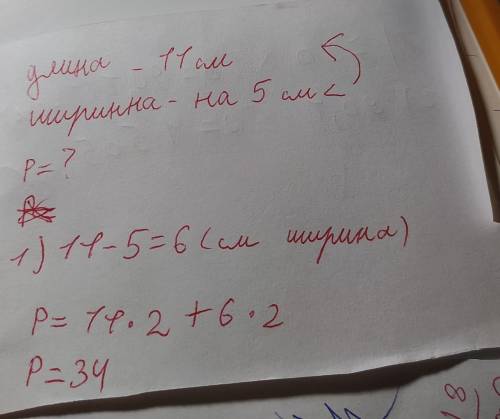 длина - 11 см
ширинна - на 5 см <
P = ?
1) 11 - 5 = 6 (см ширина)
P = 11 · 2 + 6 · 2
P = 34